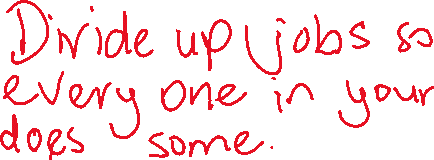 Divide up jobs so
every one in your
does some.